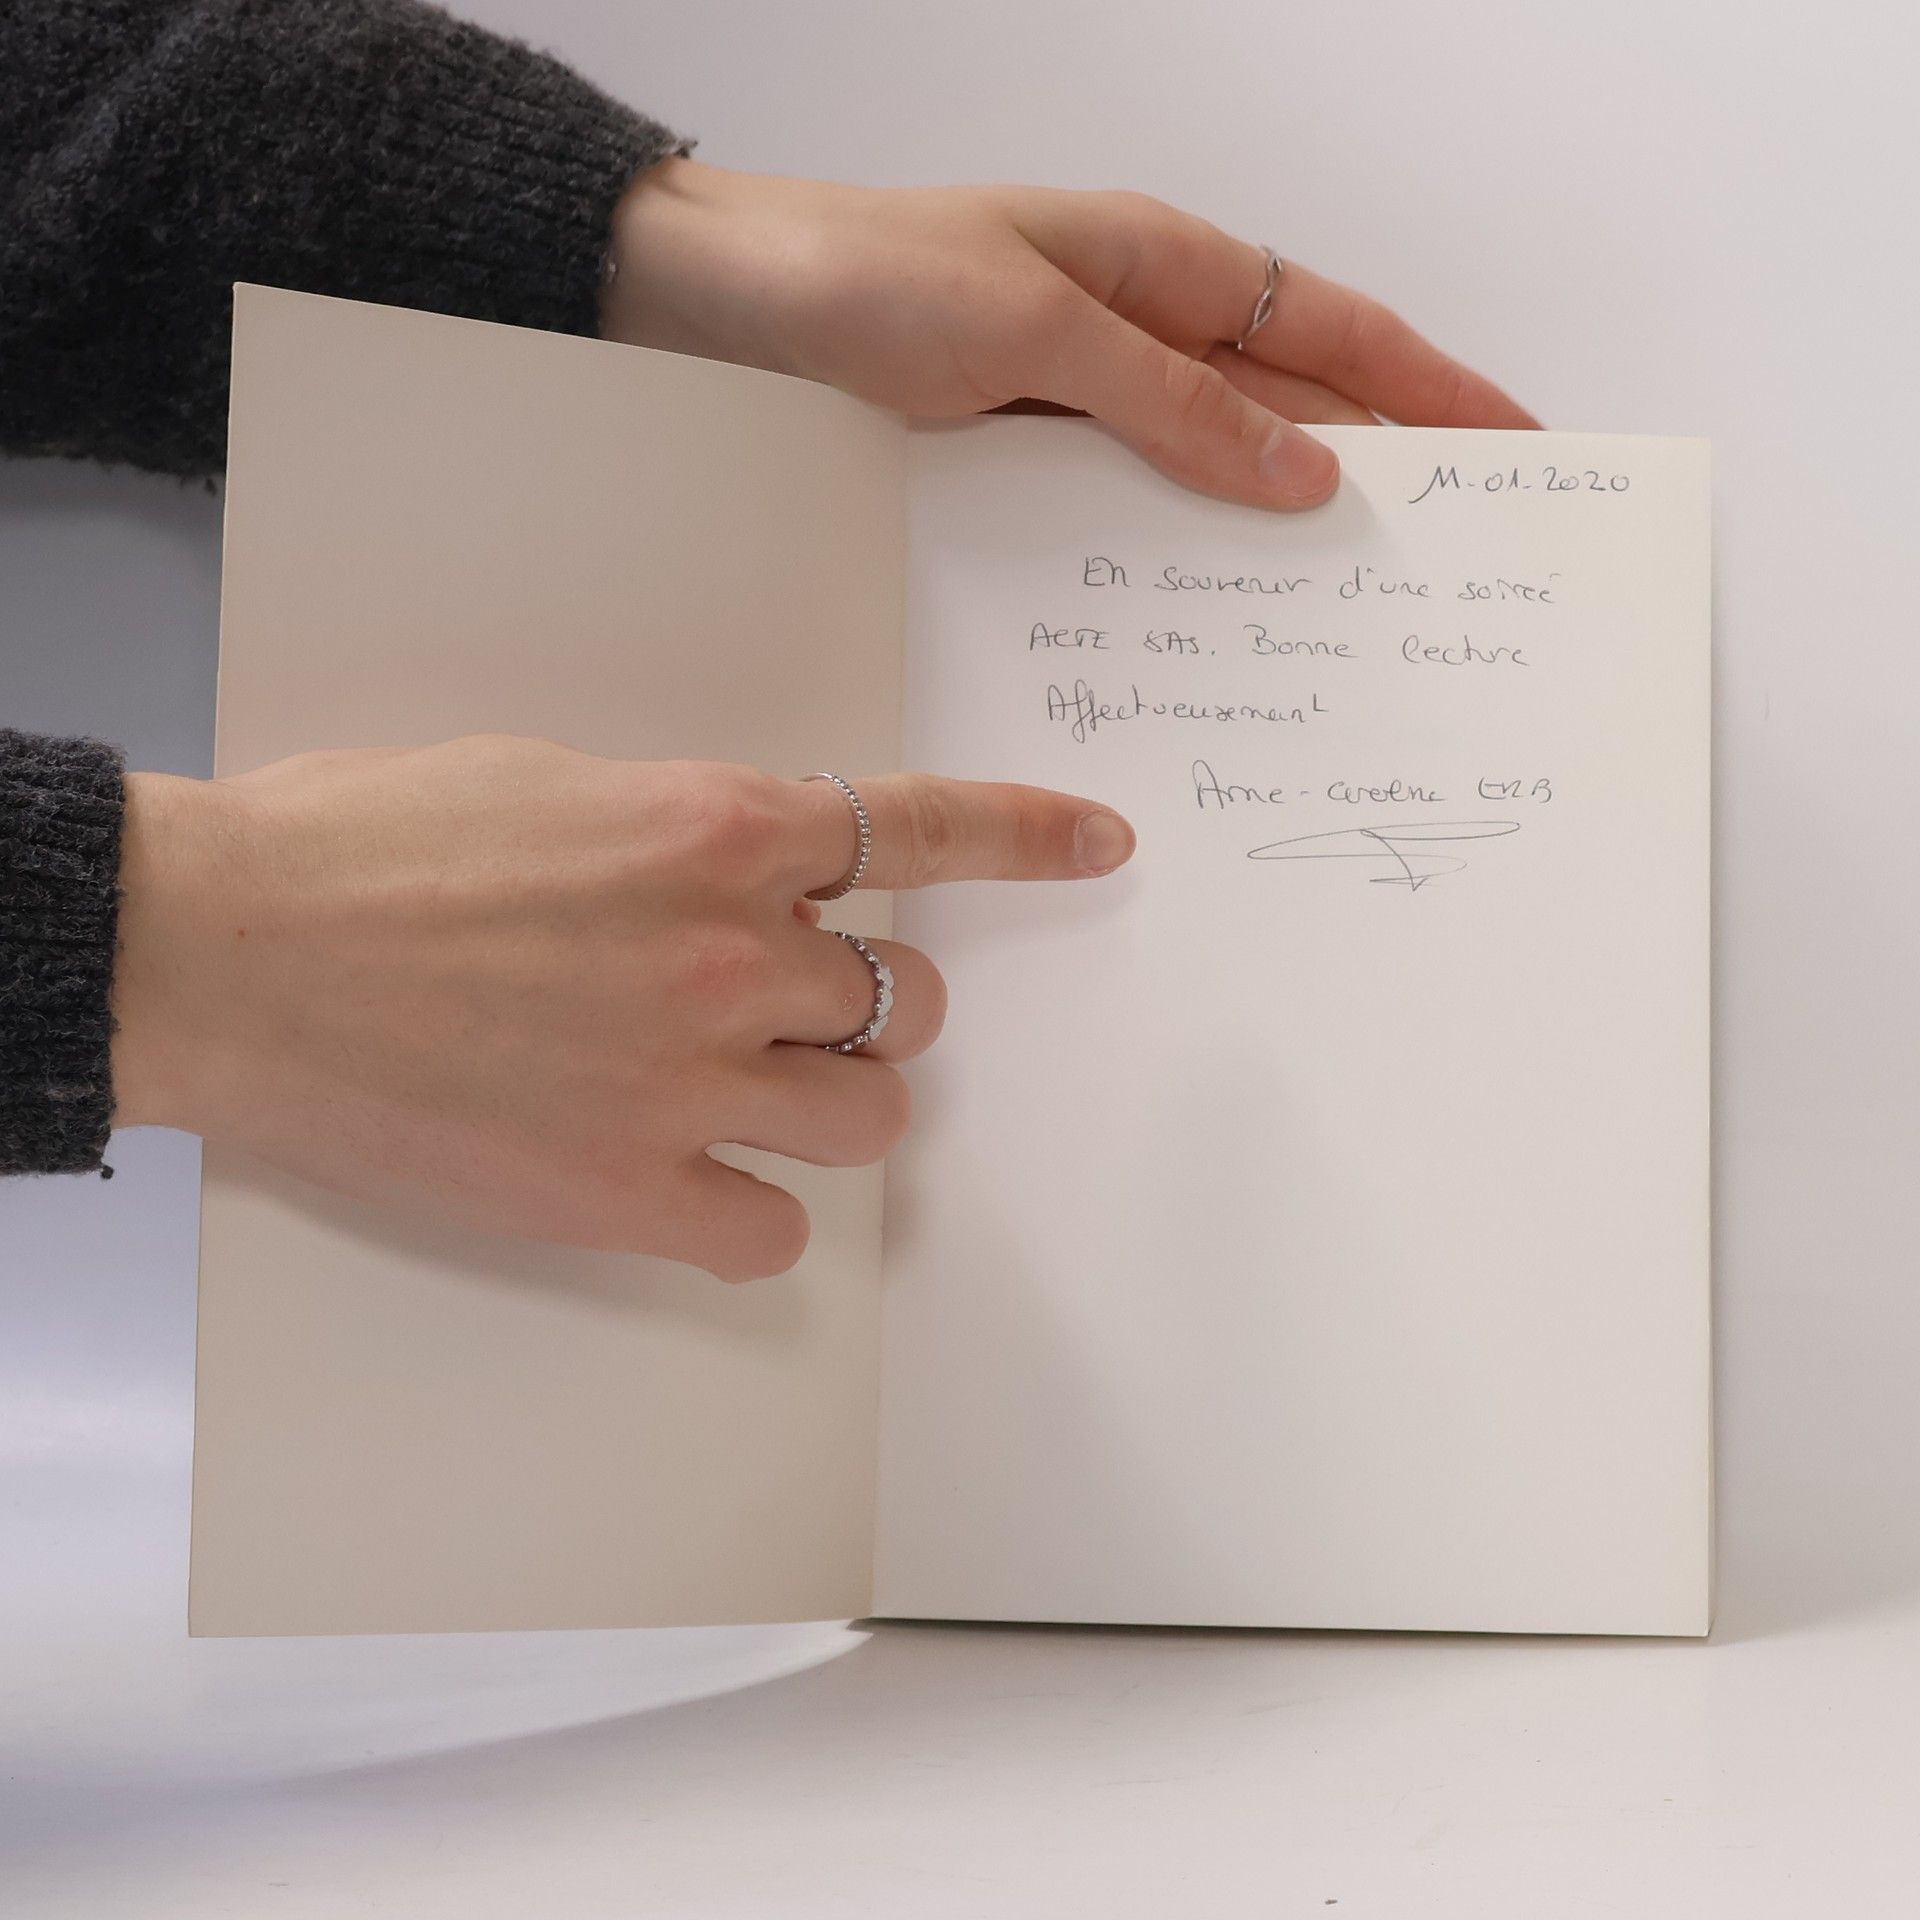 11-01-2020
En souvenir d'une soireé
ACTE SAS. Bonne lecture
Affectueusement
Anne-Caroline ERB